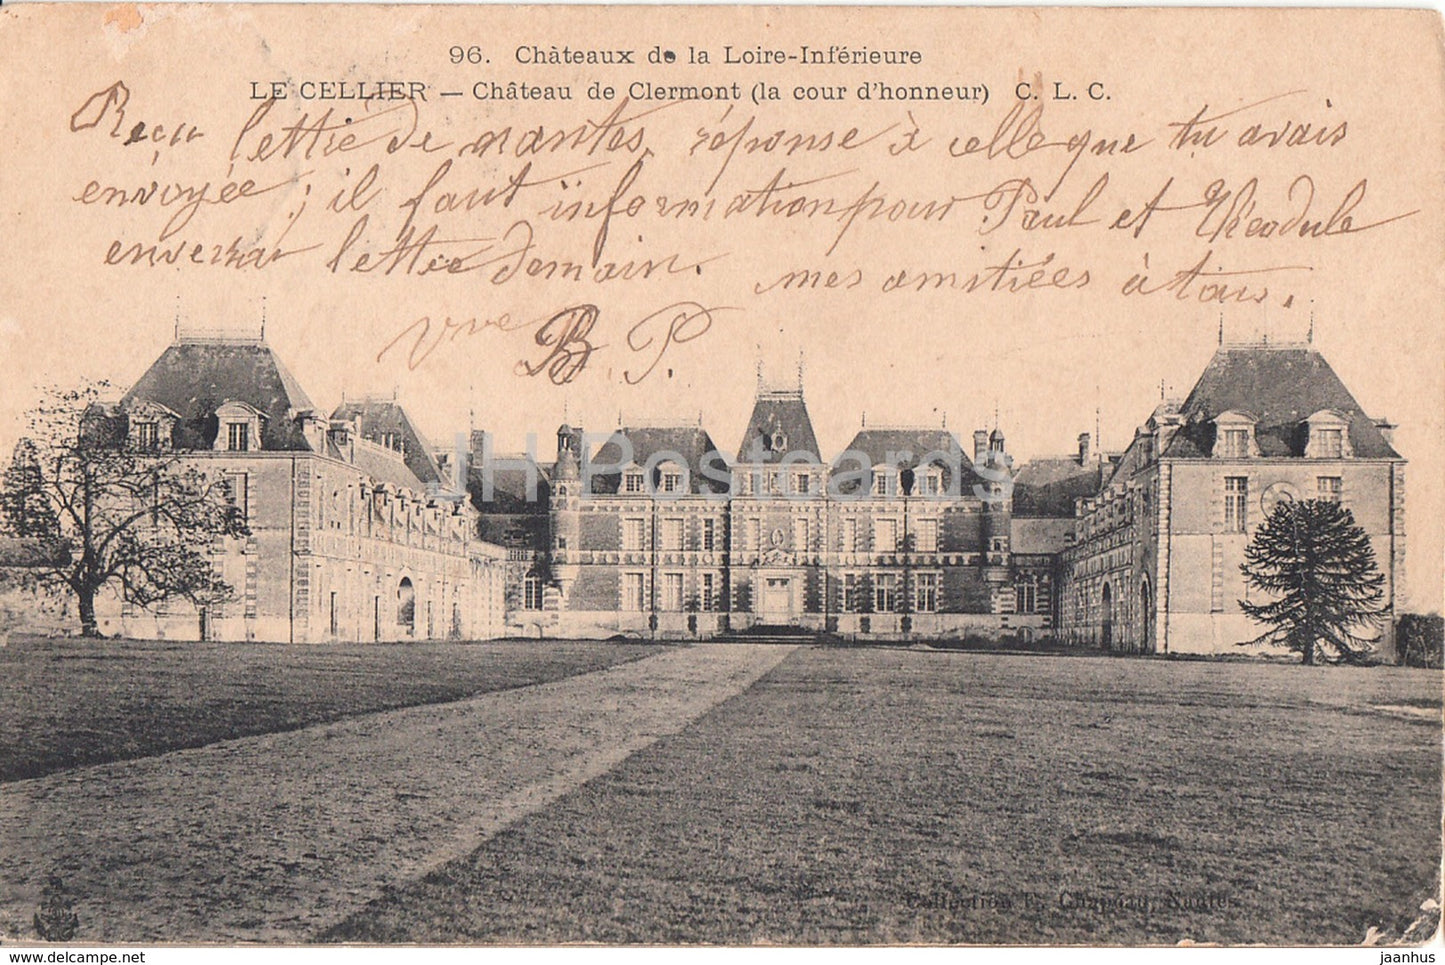 96. Châteaux de la Loire-Inférieure
LE CELLIER — Château de Clermont (la cour d'honneur) C. L. C.
Reçu lettre de nantes, réponse à celle que tu avais
envoyée ; il faut information pour Paul et Théodule
enverrai lettre demain. mes amitiées à tous.
Vve B. P.
JH Postcards
Collection F. Chapeau, Nantes
delcampe.net
jaanhus